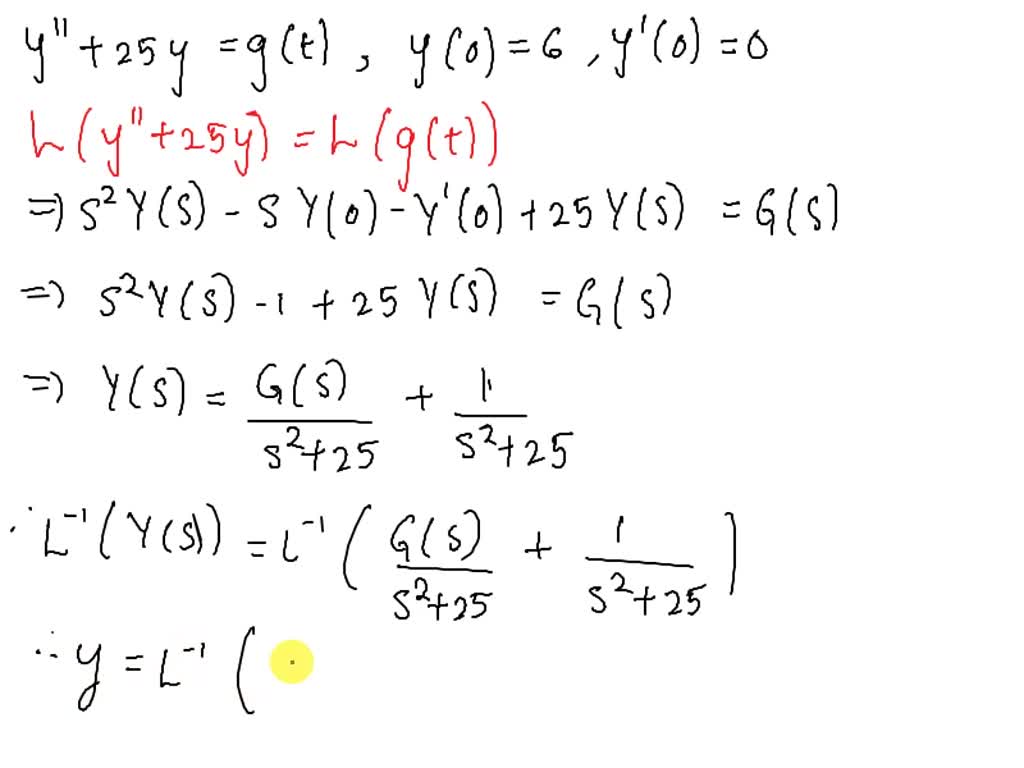 y'' + 25y = g(t), y(0) = 6, y'(0) = 0
L(y'' + 25y) = L(g(t))
⇒ s²Y(s) - sY(0) - Y'(0) + 25Y(s) = G(s)
⇒ s²Y(s) - 1 + 25Y(s) = G(s)
⇒ Y(s) = G(s)/(s²+25) + 1/(s²+25)
∴ L⁻¹(Y(s)) = L⁻¹(G(s)/(s²+25) + 1/(s²+25))
∴ y = L⁻¹(